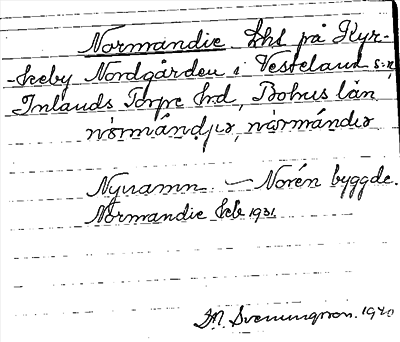 Normandie lhl på Kyr-
keby Nordgården i Västerlanda s:n,
Inlands Torpe hd, Bohus län
nòrmándjər, nòrmándiər
Nynamn. — Norén byggde
Normandie feb. 1931
M. Svenungsson. 1940